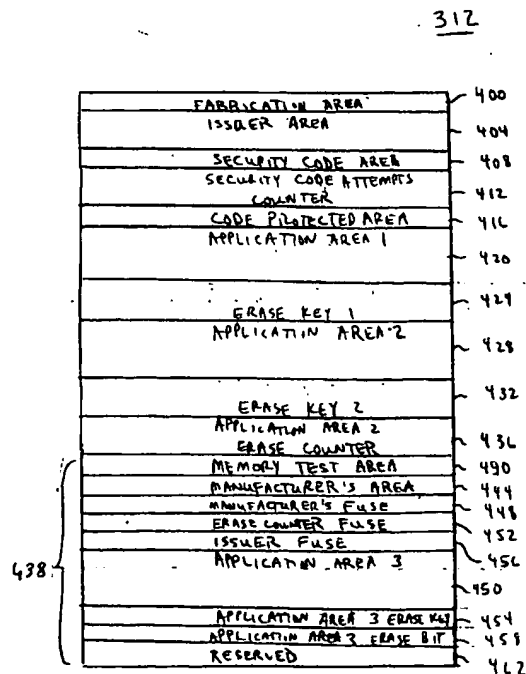 312
FABRICATION AREA 400
ISSUER AREA 404
SECURITY CODE AREA 408
SECURITY CODE ATTEMPTS
COUNTER 412
CODE PROTECTED AREA 416
APPLICATION AREA 1 420
ERASE KEY 1 424
APPLICATION AREA 2 428
ERASE KEY 2 432
APPLICATION AREA 2
ERASE COUNTER 436
MEMORY TEST AREA 440
MANUFACTURER'S AREA 444
MANUFACTURER'S FUSE 448
ERASE COUNTER FUSE 452
ISSUER FUSE 456
APPLICATION AREA 3 450
438
APPLICATION AREA 3 ERASE KEY 454
APPLICATION AREA 3 ERASE BIT 458
RESERVED 462